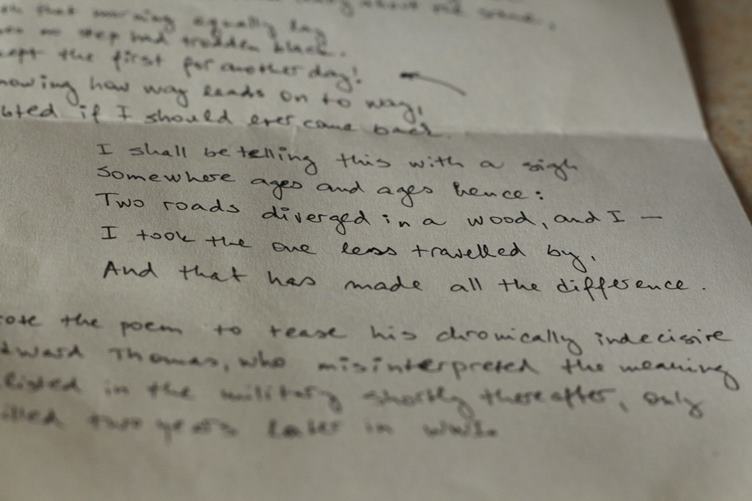 that morning equally lay
no step had trodden black.
the first for another day!
nowing how way leads on to way,
ubted if I should ever come back.
I shall be telling this with a sigh
Somewhere ages and ages hence:
Two roads diverged in a wood, and I —
I took the one less travelled by,
And that has made all the difference.
rote the poem to tease his chronically indecisire
dward Thomas, who misinterpreted the meaning
listed in the military shortly thereafter, only
illed two years later in